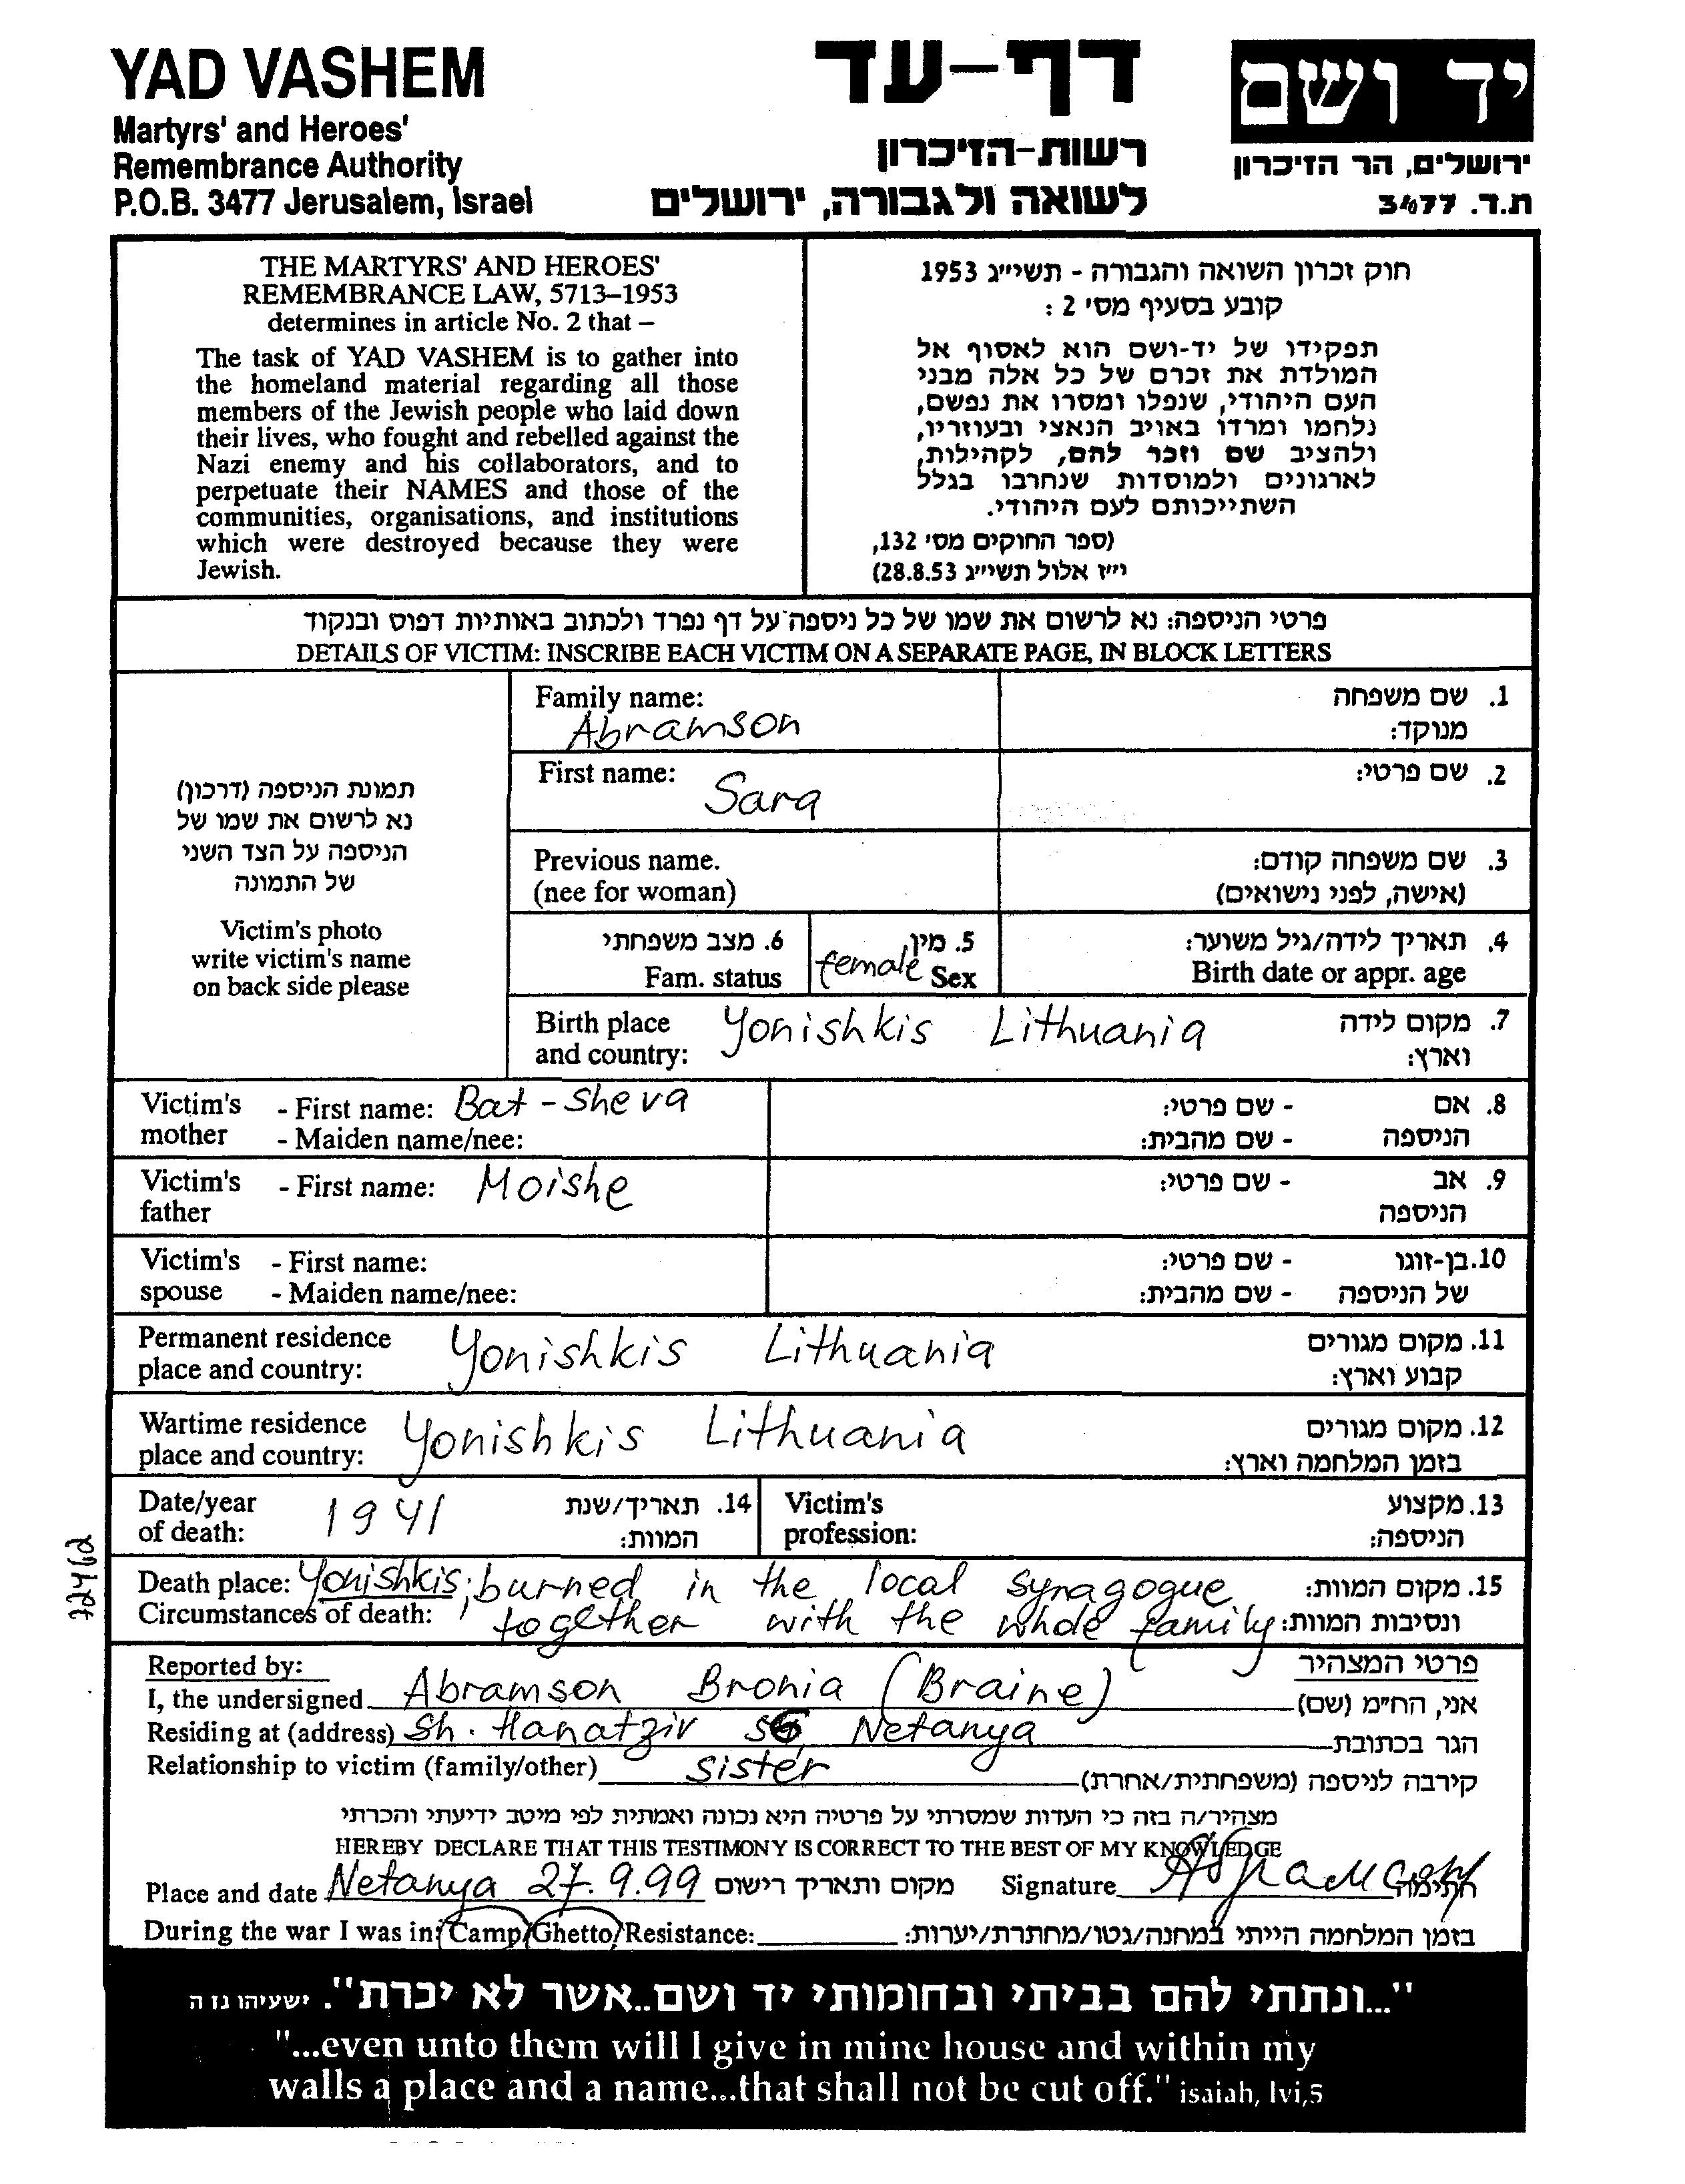 YAD VASHEM
Martyrs' and Heroes'
Remembrance Authority
P.O.B. 3477 Jerusalem, Israel
דף-עד
רשות-הזיכרון
לשואה ולגבורה, ירושלים
יד ושם
ירושלים, הר הזיכרון
ת.ד. 3477
THE MARTYRS' AND HEROES'
REMEMBRANCE LAW, 5713–1953
determines in article No. 2 that –
The task of YAD VASHEM is to gather into
the homeland material regarding all those
members of the Jewish people who laid down
their lives, who fought and rebelled against the
Nazi enemy and his collaborators, and to
perpetuate their NAMES and those of the
communities, organisations, and institutions
which were destroyed because they were
Jewish.
חוק זכרון השואה והגבורה - תשי״ג 1953
קובע בסעיף מס׳ 2 :
תפקידו של יד-ושם הוא לאסוף אל
המולדת את זכרם של כל אלה מבני
העם היהודי, שנפלו ומסרו את נפשם,
נלחמו ומרדו באויב הנאצי ובעוזריו,
ולהציב שם וזכר להם, לקהילות,
לארגונים ולמוסדות שנחרבו בגלל
השתייכותם לעם היהודי.
(ספר החוקים מס׳ 132,
י״ז אלול תשי״ג 28.8.53)
פרטי הניספה: נא לרשום את שמו של כל ניספה על דף נפרד ולכתוב באותיות דפוס ובנקוד
DETAILS OF VICTIM: INSCRIBE EACH VICTIM ON A SEPARATE PAGE, IN BLOCK LETTERS
תמונת הניספה (דרכון)
נא לרשום את שמו של
הניספה על הצד השני
של התמונה
Victim's photo
write victim's name
on back side please
Family name: 1. שם משפחה
Abramson מנוקד:
First name: Sara 2. שם פרטי:
Previous name. 3. שם משפחה קודם:
(nee for woman) (אישה, לפני נישואים)
6. מצב משפחתי 5. מין 4. תאריך לידה/גיל משוער:
Fam. status female Sex Birth date or appr. age
Birth place Yonishkis Lithuania 7. מקום לידה
and country: וארץ:
Victim's - First name: Bat-Sheva - שם פרטי: 8. אם
mother - Maiden name/nee: - שם מהבית: הניספה
Victim's - First name: Moishe - שם פרטי: 9. אב
father הניספה
Victim's - First name: - שם פרטי: 10. בן-זוגו
spouse - Maiden name/nee: - שם מהבית: של הניספה
Permanent residence Yonishkis Lithuania 11. מקום מגורים
place and country: קבוע וארץ:
Wartime residence Yonishkis Lithuania 12. מקום מגורים
place and country: בזמן המלחמה וארץ:
Date/year 1941 14. תאריך/שנת Victim's 13. מקצוע
of death: המוות: profession: הניספה:
72462
Death place: Yonishkis; burned in the local synagogue 15. מקום המוות:
Circumstances of death: together with the whole family ונסיבות המוות:
Reported by: פרטי המצהיר
I, the undersigned Abramson Bronia (Braine) אני, הח״מ (שם)
Residing at (address) Sh. Hanatziv 56 Netanya הגר בכתובת
Relationship to victim (family/other) sister קירבה לניספה (משפחתית/אחרת)
מצהיר/ה בזה כי העדות שמסרתי על פרטיה היא נכונה ואמתית לפי מיטב ידיעתי והכרתי
HEREBY DECLARE THAT THIS TESTIMONY IS CORRECT TO THE BEST OF MY KNOWLEDGE
Place and date Netanya 27.9.99 מקום ותאריך רישום Signature חתימה
During the war I was in: Camp/Ghetto/Resistance: בזמן המלחמה הייתי במחנה/גטו/מחתרת/יערות:
"...ונתתי להם בביתי ובחומותי יד ושם..אשר לא יכרת". ישעיהו נו ה
"...even unto them will I give in mine house and within my
walls a place and a name...that shall not be cut off." isaiah, lvi,5